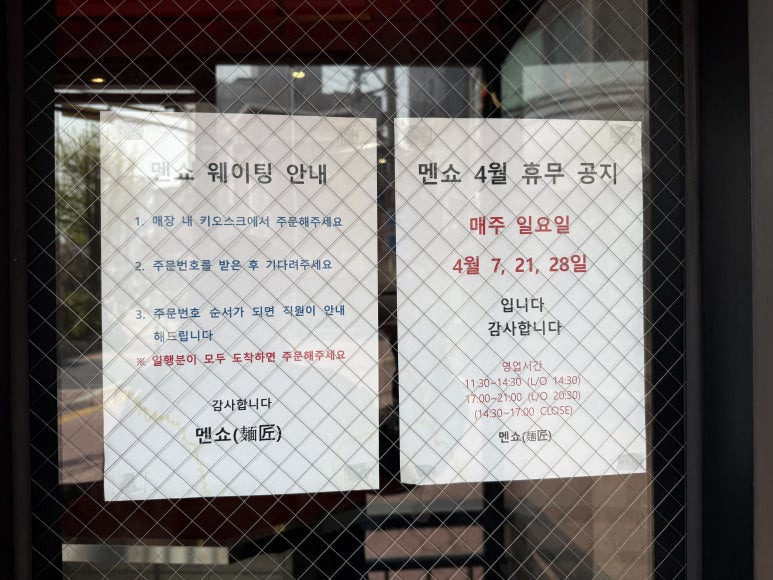 멘쇼 웨이팅 안내
1. 매장 내 키오스크에서 주문해주세요
2. 주문번호를 받은 후 기다려주세요
3. 주문번호 순서가 되면 직원이 안내
해드립니다
※ 일행분이 모두 도착하면 주문해주세요
감사합니다
멘쇼(麺匠)
멘쇼 4월 휴무 공지
매주 일요일
4월 7, 21, 28일
입니다
감사합니다
영업시간
11:30~14:30 (L/O 14:30)
17:00~21:00 (L/O 20:30)
(14:30~17:00 CLOSE)
멘쇼(麺匠)